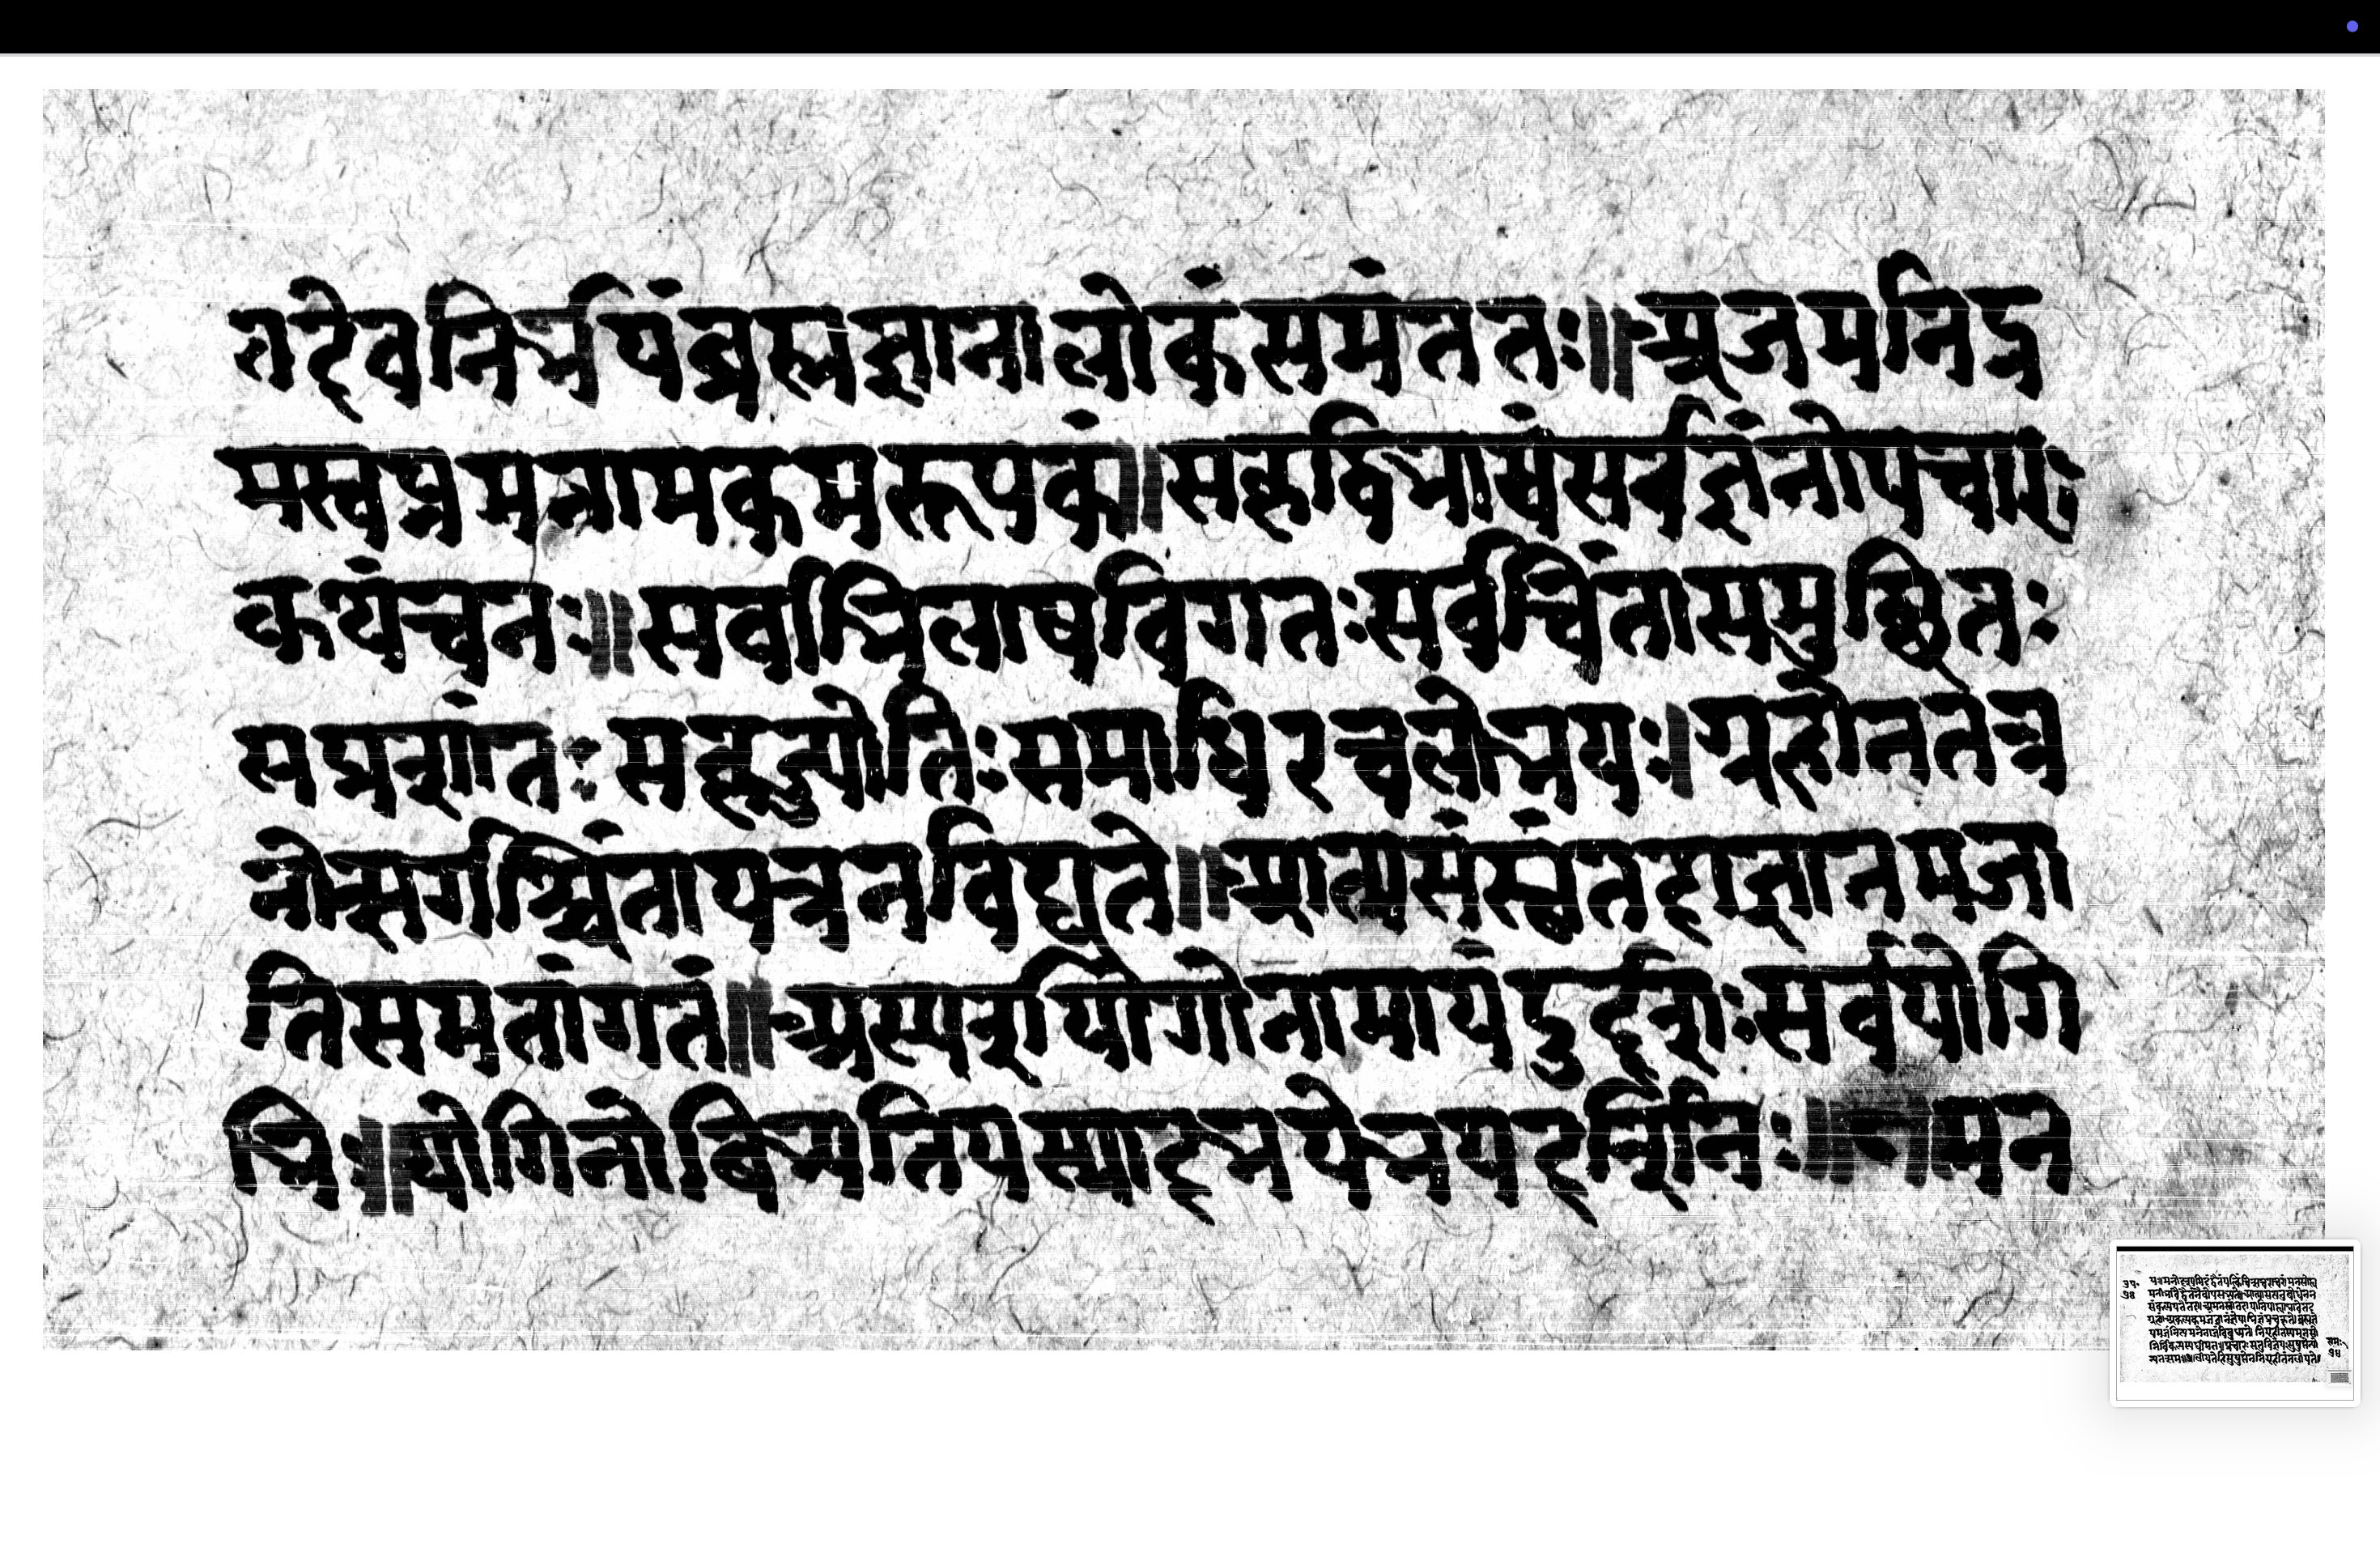 तदेवनिर्भयंब्रह्मज्ञानालोकंसमंततः॥अजमनिद्र
मस्वप्नमनामकमरूपकं॥सकृद्विभासंसर्वज्ञंनोपचारः
कथंचनः॥सर्वाभिलाषविगतःसर्वचिंतासमुछितः
सप्रशांतः सकृज्योतिःसमाधिरचलोभयः।ग्रहोनतत्र
नोत्सर्गश्चिंतायत्रनविद्यते॥आत्मसंस्छंतदाज्ञानमजा
तिसमतांगतं॥अस्पर्शयोगोनामायंदुर्दर्शःसर्वयोगि
भिः॥योगिनोबिभ्यतियस्मादभयेभयदर्शिनः॥ मन